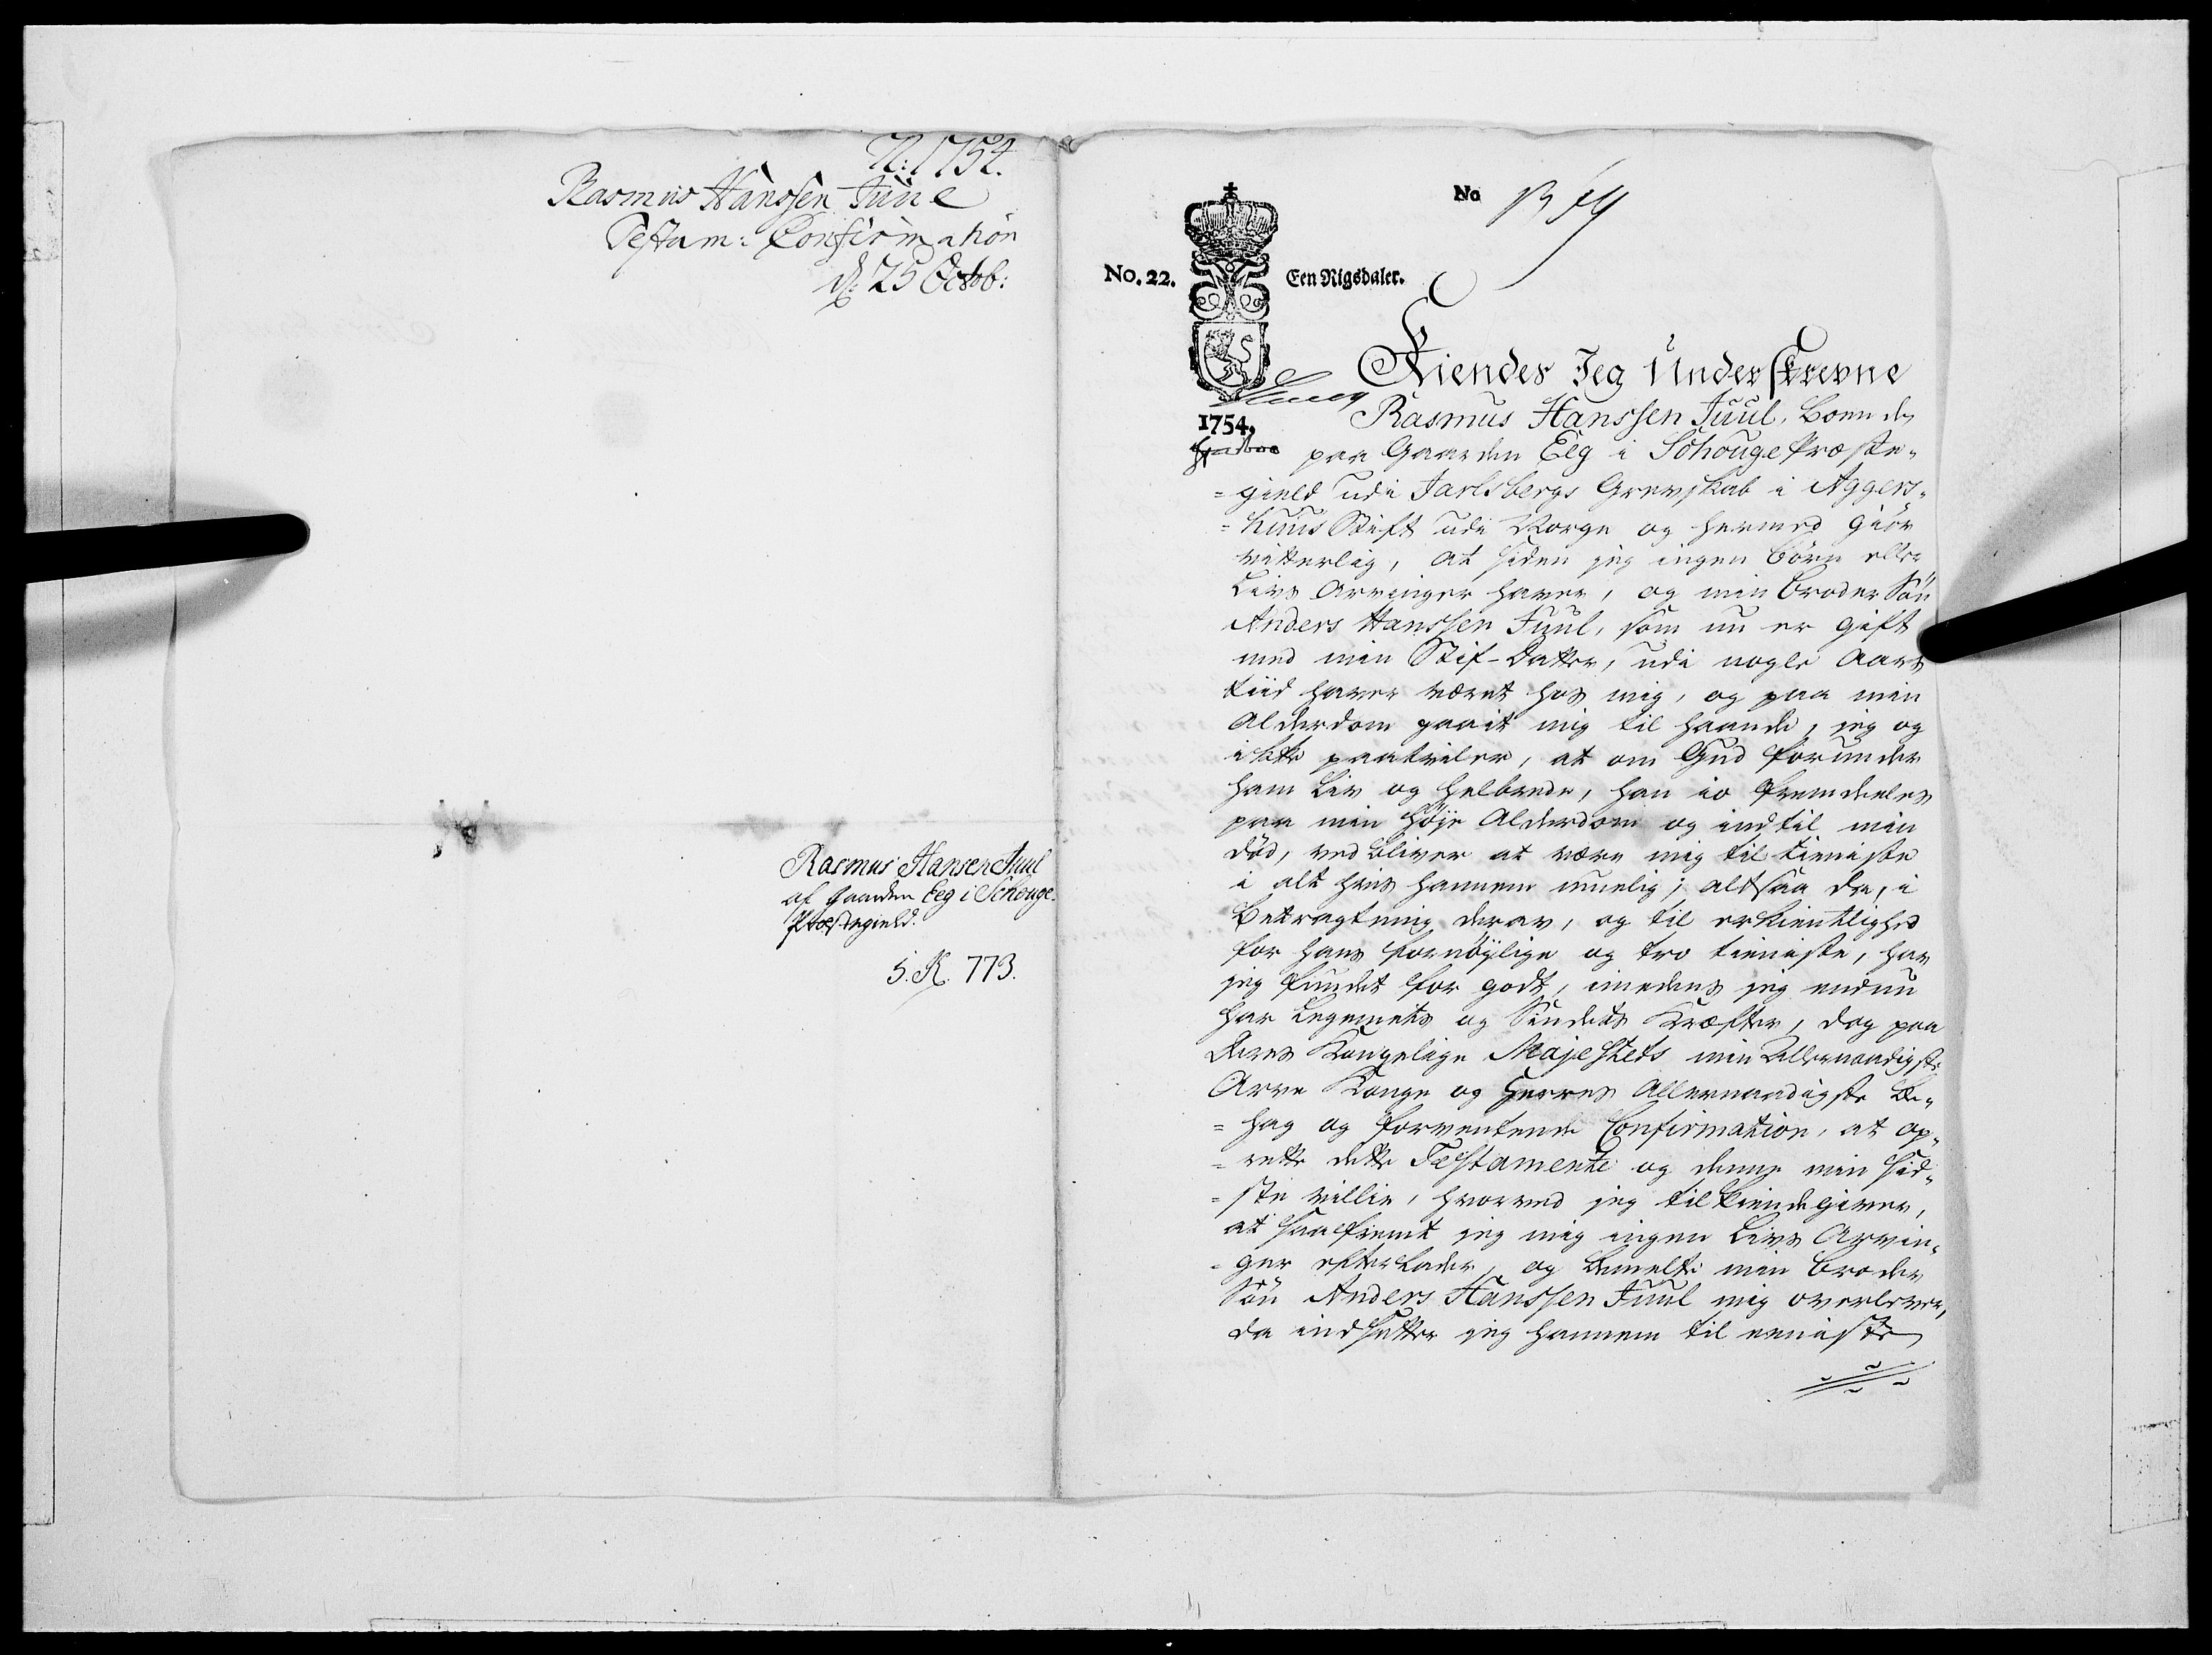 N: 1754.
Rasmus Hanssen Juul
Testam: Confirmation
d: 25 Octob:
Rasmus Hansen Juul
af Gaarden Eeg i Schouge
Præstegield.
S. K. 773.
No
No. 22.
Een Rigsdaler.
1754.
Kiendes Jeg Underskrevne
Rasmus Hanssen Juul, Boende
paa Gaarden Eeg i Schouge Præste„
=gield udi Jarlsbergs Grevskab i Aggers„
=huus Stift udi Norge og hermed giör
vitterlig, at siden jeg ingen börn eller
Livs Arvinger haver, og min Broder Sön
Anders Hanssen Juul, som nu er gift
med min Stif-Datter, udi nogle Aars
tiid haver været hos mig, og paa min
Alderdom gaait mig til haande, jeg og
ikke paatviler, at om Gud forunder
ham Liv og helbrede, han jo fremdeeles
paa min höje Alderdom og indtil min
död, ved bliver at være mig til tieniste
i alt hvis hannem muelig; altsaa da, i
Betragtning derav, og til erkientlighed
for hans fornöjelige og tro tieniste, har
jeg fundet for godt, imedens jeg endnu
har Legemets og Sindets Kræfter, dog paa
Deres Kongelige Majestets min Allernaadigste
Arve Konge og Herres Allernaadigste be„
=hag og forventende Confirmation, at op„
=rette dette Testamente og denne min sid„
=ste villie, hvorved jeg tilkiende giver,
at saafremt jeg mig ingen Livs Arvin„
=ger efterlader, og bemelte min Broder
Sön Anders Hanssen Juul mig overlever,
da indsætter jeg hannem til eeniste